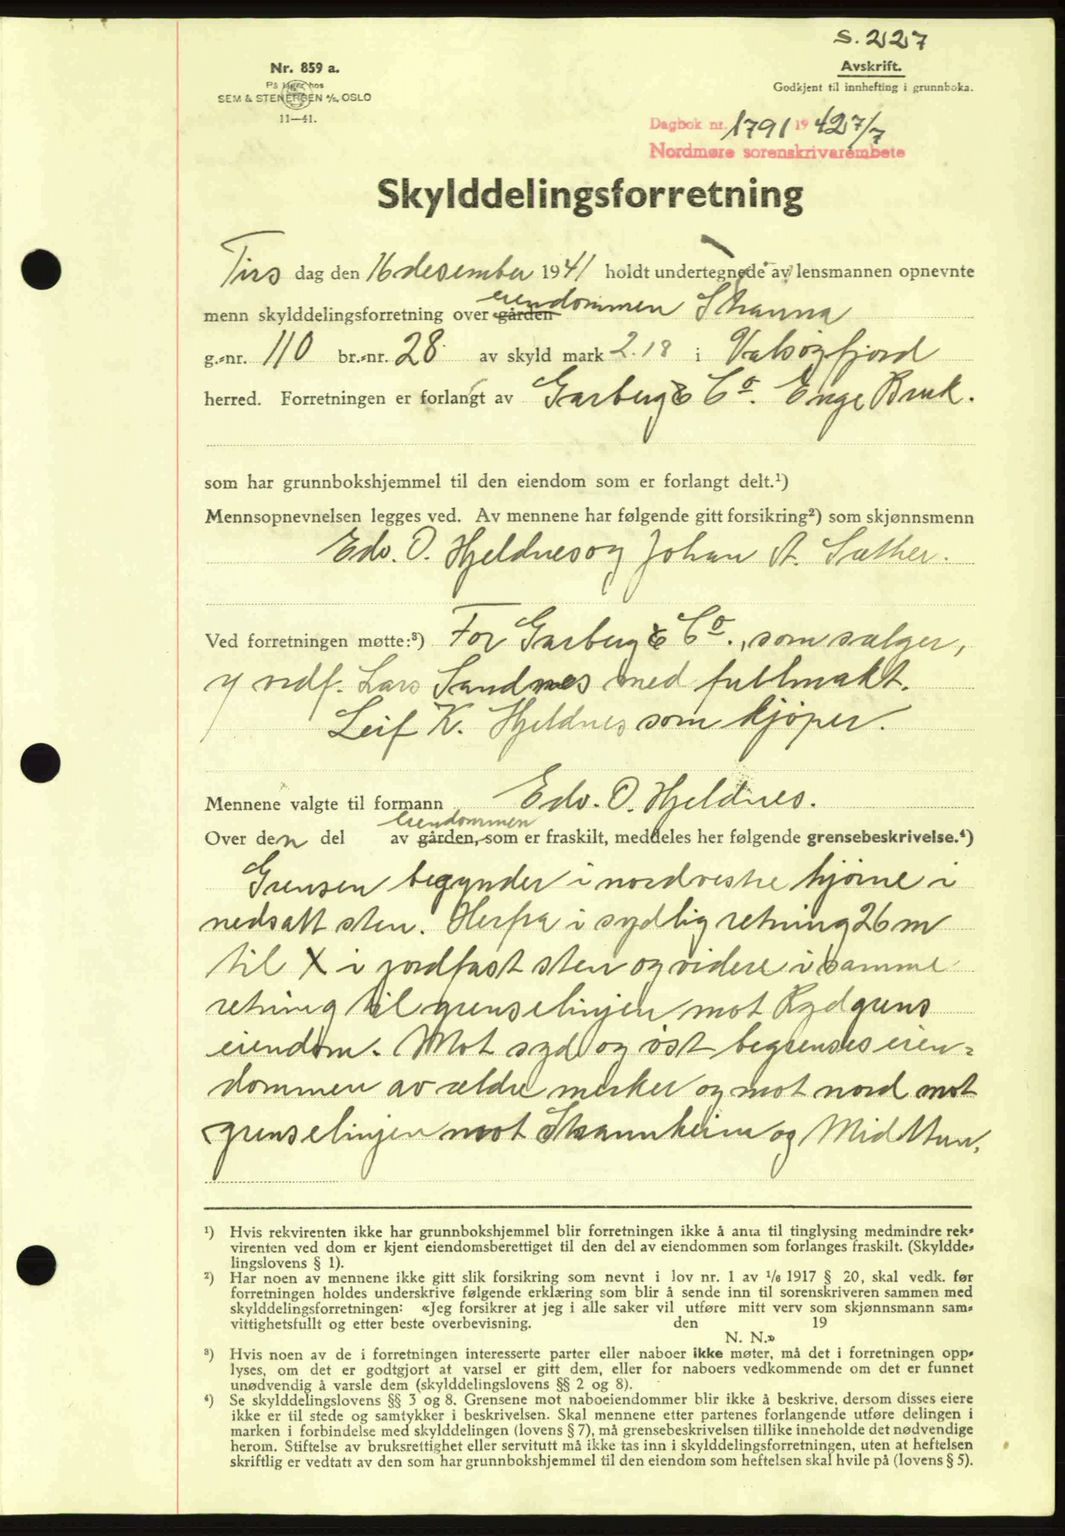 S. 227
Nr. 859 a.
På lager hos
SEM & STENERSEN A/S, OSLO
11—41.
Avskrift.
Godkjent til innhefting i grunnboka.
Dagbok nr. 1791 1942 27/7
Nordmøre sorenskrivarembete
Skylddelingsforretning
Tirs dag den 16 desember 1941 holdt undertegnede av lensmannen opnevnte
eiendommen
menn skylddelingsforretning over gården Skanna
g.-nr. 110 br.-nr. 28 av skyld mark 2.18 i Valsøyfjord
herred. Forretningen er forlangt av Garberg & Co. Enge Bruk.
som har grunnbokshjemmel til den eiendom som er forlangt delt.¹)
Mennsopnevnelsen legges ved. Av mennene har følgende gitt forsikring²) som skjønnsmenn
Edv. O. Hjeldnes og Johan A. Sæther.
Ved forretningen møtte:³) For Garberg & Co., som selger,
ved Lars Sandnes med fullmakt.
Leif K. Hjeldnes som kjøper.
Mennene valgte til formann Edv. O. Hjeldnes.
eiendommen
Over den del av gården, som er fraskilt, meddeles her følgende grensebeskrivelse.⁴)
Grensen begynder i nordvestre hjørne i
nedsatt sten. Herfra i sydlig retning 26 m
til X i jordfast sten og videre i samme
retning til grenselinjen mot Rydgrens
eiendom. Mot syd og øst begrenses eien=
dommen av ældre merker og mot nord mot
grenselinjen mot Skannheim og Midttun.
¹) Hvis rekvirenten ikke har grunnbokshjemmel blir forretningen ikke å anta til tinglysing medmindre rek-
virenten ved dom er kjent eiendomsberettiget til den del av eiendommen som forlanges fraskilt. (Skyldde-
lingslovens § 1).
²) Har noen av mennene ikke gitt slik forsikring som nevnt i lov nr. 1 av 1/6 1917 § 20, skal vedk. før
forretningen holdes underskrive følgende erklæring som blir å sende inn til sorenskriveren sammen med
skylddelingsforretningen: «Jeg forsikrer at jeg i alle saker vil utføre mitt verv som skjønnsmann sam-
vittighetsfullt og etter beste overbevisning. den 19
N. N.»
³) Hvis noen av de i forretningen interesserte parter eller naboer ikke møter, må det i forretningen opp-
lyses, om det er godtgjort at varsel er gitt dem, eller for naboers vedkommende om det er funnet
unødvendig å varsle dem (skylddelingslovens §§ 2 og 8).
⁴) Se skylddelingslovens §§ 3 og 8. Grensene mot naboeiendommer blir ikke å beskrive, dersom disses eiere
ikke er til stede og samtykker i beskrivelsen. Skal mennene etter partenes forlangende utføre delingen i
marken i forbindelse med skylddelingen (lovens § 7), må grensebeskrivelsen tillike inneholde det nødvendige
herom. Stiftelse av bruksrettighet eller servitutt må ikke tas inn i skylddelingsforretningen, uten at heftelsen
skriftlig er vedtatt av den som har grunnbokshjemmel til den eiendom som heftelsen skal hvile på (lovens § 5).